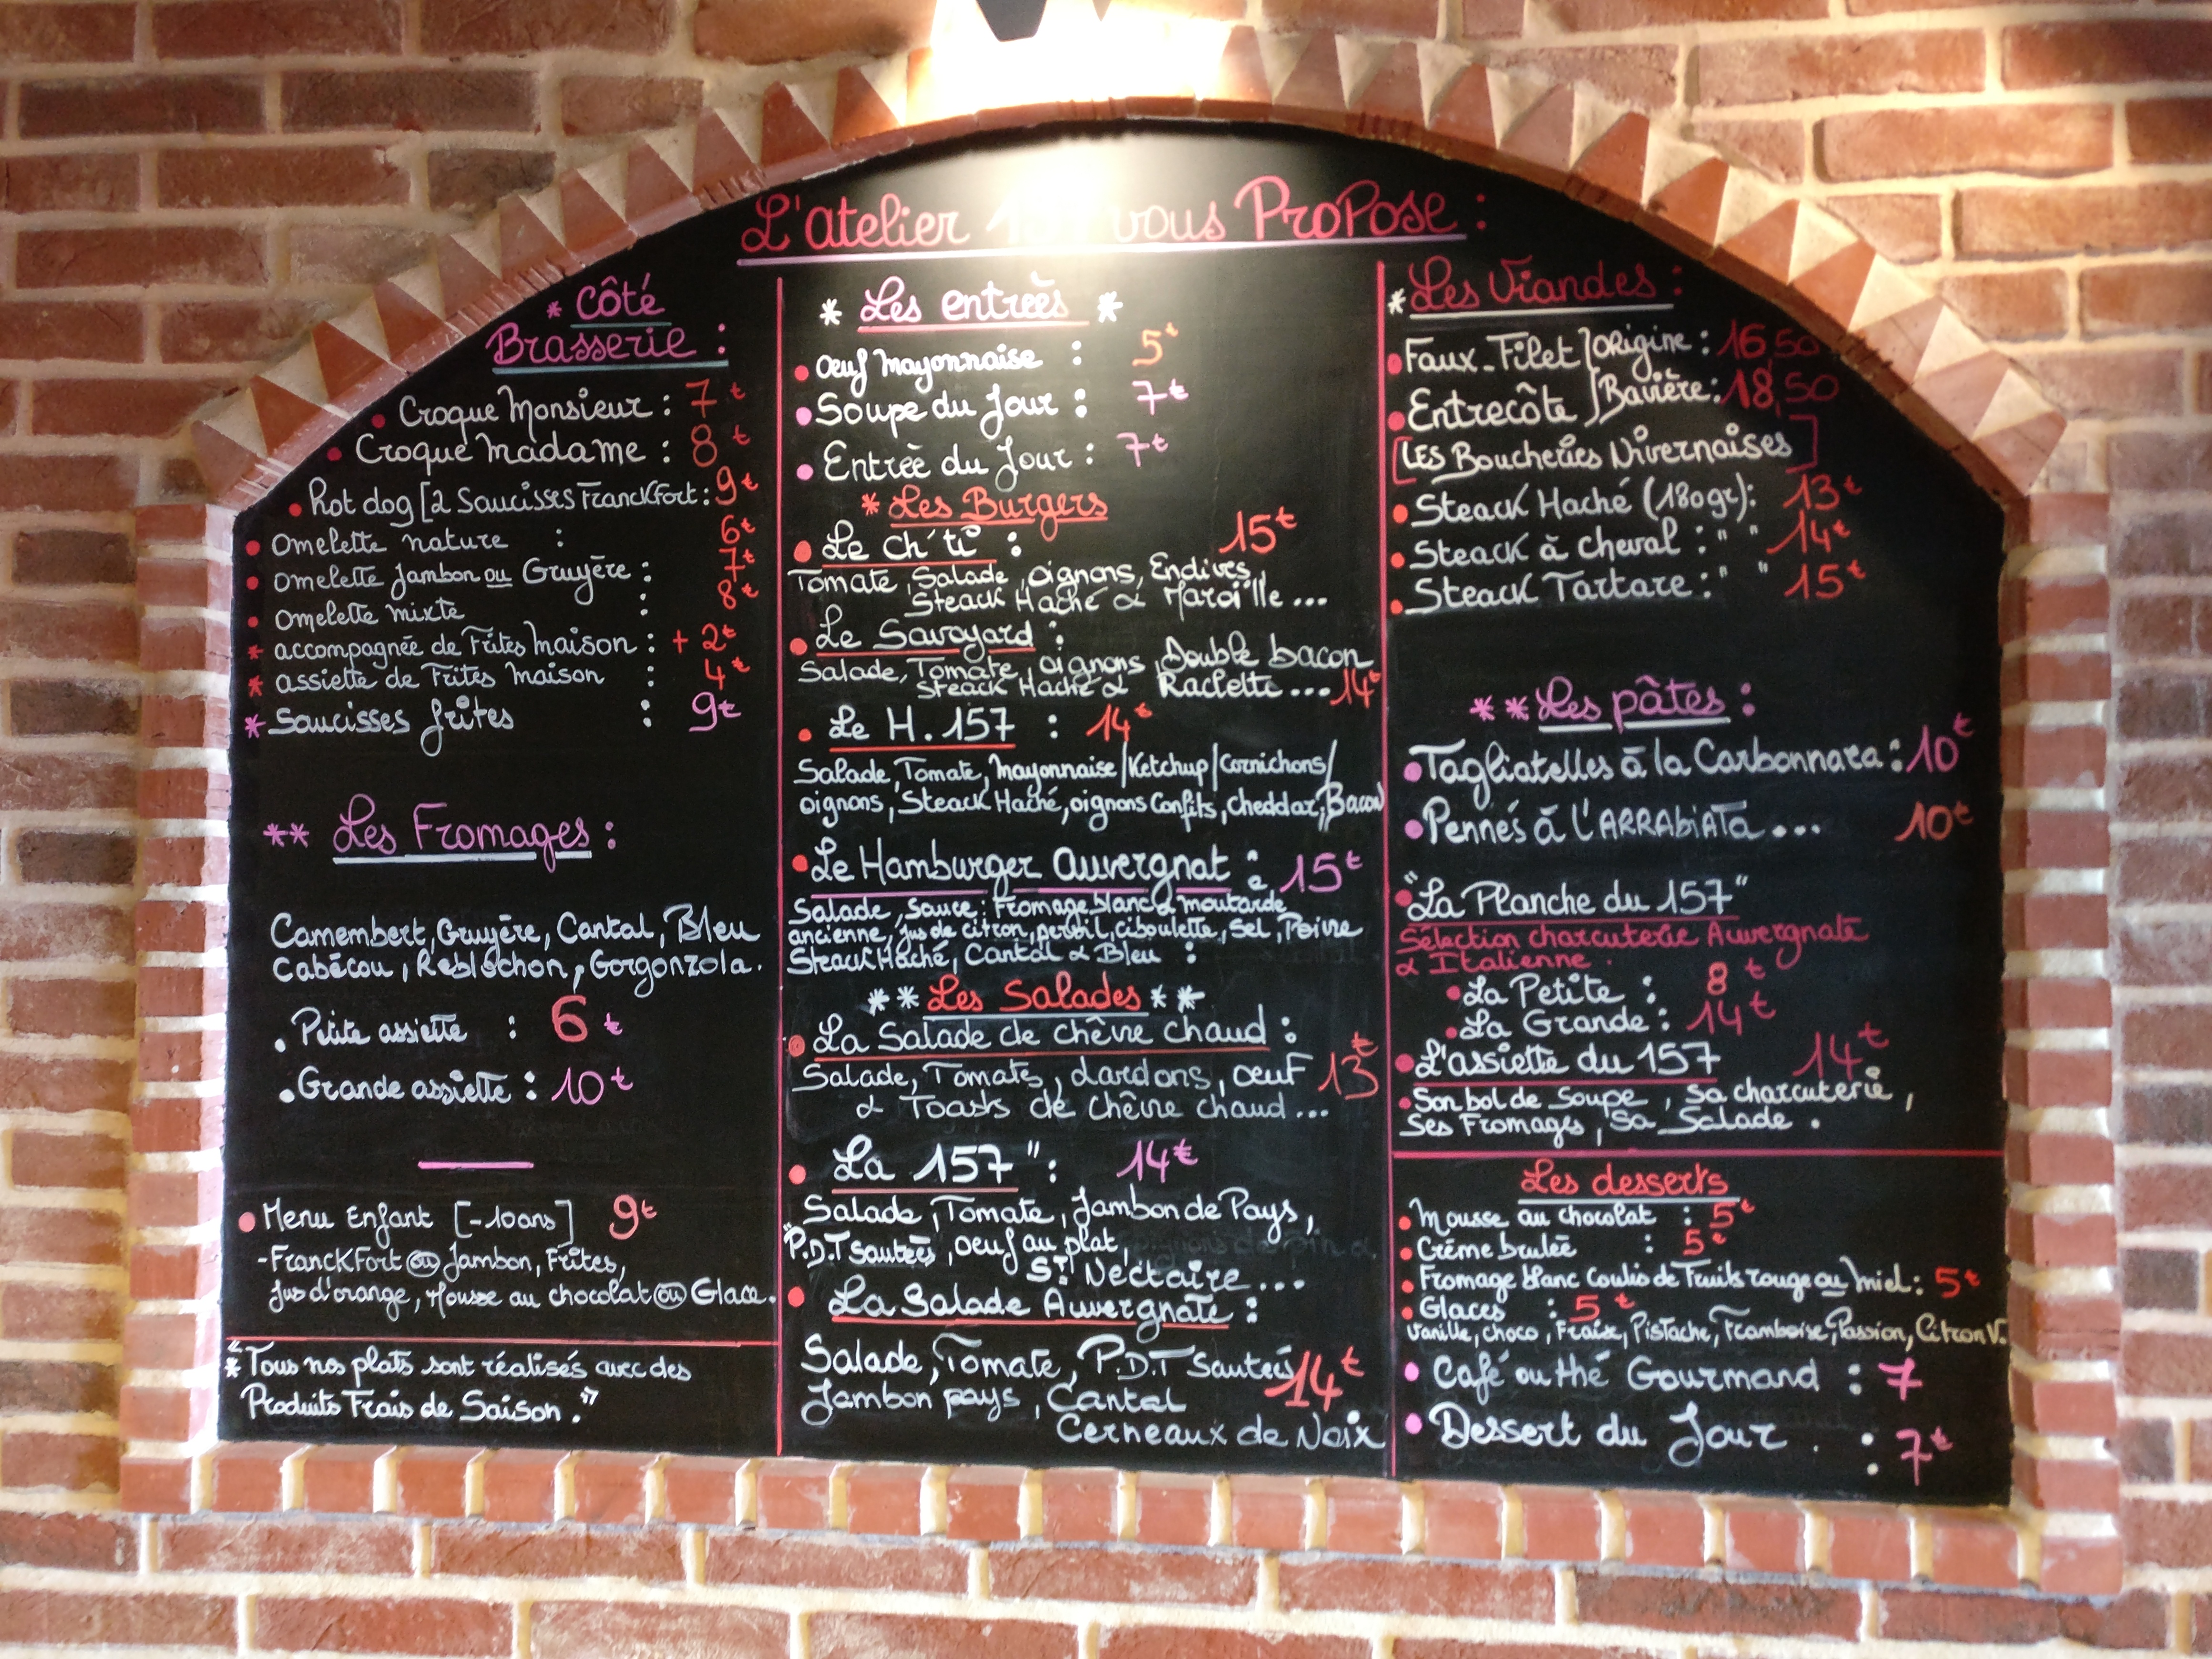 L'atelier vous Propose :
* Côté
Brasserie :
• Croque Monsieur : 7€
• Croque Madame : 8€
• hot dog [2 Saucisses Franckfort : 9€
• Omelette nature : 6€
• Omelette Jambon ou Gruyère : 7€
• Omelette mixte : 8€
* accompagnée de Frites Maison : + 2€
* assiette de Frites Maison : 4€
* Saucisses frites : 9€
** Les Fromages :
Camembert, Gruyère, Cantal, Bleu
Cabécou, Reblochon, Gorgonzola.
• Petite assiette : 6€
• Grande assiette : 10€
• Menu Enfant [-10ans] 9€
- Franckfort ou Jambon, Frites,
Jus d'orange, Mousse au chocolat ou Glace.
"* Tous nos plats sont réalisés avec des
Produits Frais de Saison."
* Les entreès *
• Oeuf Mayonnaise : 5€
• Soupe du Jour : 7€
• Entreè du Jour : 7€
* Les Burgers
• Le Ch'ti : 15€
Tomate, Salade, oignons, Endives,
Steack Haché & Maroïlle...
• Le Savoyard :
Salade, Tomate, oignons, Double bacon
Steack Haché & Raclette...14€
• Le H.157 : 14€
Salade, Tomate, Mayonnaise/Ketchup/Cornichons/
oignons, Steack Haché, oignons Confits, cheddar, Bacon
• Le Hamburger Auvergnat : 15€
Salade, Sauce: Fromage blanc & moutarde
ancienne, jus de citron, persil, ciboulette, Sel, Poivre
Steack Haché, Cantal & Bleu :
** Les Salades **
• La Salade de chêvre chaud :
Salade, Tomates, Lardons, Oeuf 13€
& Toasts de chêvre chaud...
• La 157" : 14€
Salade, Tomate, Jambon de Pays,
"P.D.T Sauteès, Oeuf au plat,
St Nectaire...
• La Salade Auvergnate :
Salade, Tomate, P.D.T Sauteès 14€
Jambon pays, Cantal
Cerneaux de Noix
* Les Viandes :
• Faux-Filet / Origine : 16,50
• Entrecôte / Bavière : 18,50
[LES Boucheries Nivernaises]
• Steack Haché (180gr) : 13€
• Steack à cheval : " " 14€
• Steack Tartare : " " 15€
** Les pâtes :
• Tagliatelles à la Carbonnara : 10€
• Pennés à L'ARRABiATa... 10€
• "La Planche du 157"
Sélection charcuterie Auvergnate
& Italienne.
• La Petite : 8€
• La Grande : 14€
• L'assiette du 157 14€
• Son bol de Soupe, Sa charcuterie,
Ses Fromages, Sa Salade.
Les desserts
• Mousse au chocolat : 5€
• Crème brulée : 5€
• Fromage blanc Coulis de Fruits rouge ou miel : 5€
• Glaces : 5€
Vanille, choco, Fraise, Pistache, Framboise, Passion, Citron V.
• Café ou thé Gourmand : 7
• Dessert du Jour . : 7€